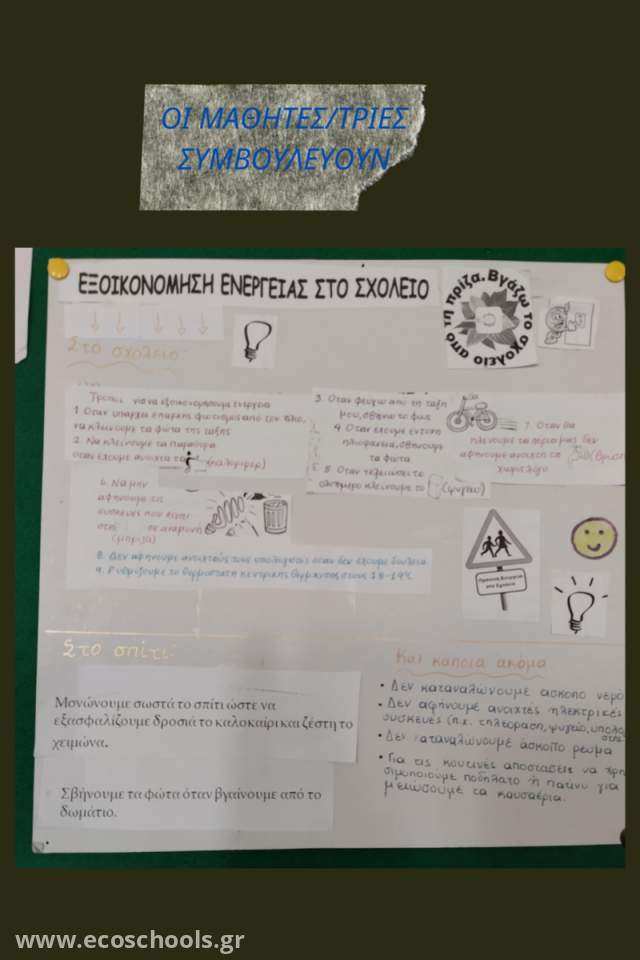 ΟΙ ΜΑΘΗΤΕΣ/ΤΡΙΕΣ
ΣΥΜΒΟΥΛΕΥΟΥΝ
ΕΞΟΙΚΟΝΟΜΗΣΗ ΕΝΕΡΓΕΙΑΣ ΣΤΟ ΣΧΟΛΕΙΟ
Βγάζω το σχολείο από τη πρίζα.
Στο σχολείο
Τρόποι για να εξοικονομήσουμε ενέργεια
1. Όταν υπάρχει επαρκής φωτισμός από τον ήλιο,
να κλείνουμε τα φώτα της τάξης
2. Να κλείνουμε τα παράθυρα
όταν έχουμε ανοιχτά το (καλοριφέρ)
3. Όταν φεύγω από τη τάξη
μου, σβήνω το φως
4. Όταν έχουμε έντονη
ηλιοφάνεια, σβήνουμε
τα φώτα
5. Όταν τελειώσει το
ολοήμερο κλείνουμε το (ψυγείο)
6. Να μην
αφήνουμε τις
συσκευές που είναι
στη σε αναμονή
(μπρίζα)
7. Όταν θα
πλένουμε τα χέρια μας δεν
αφήνουμε ανοιχτή τη (βρύση)
χωρίς λόγο
8. Δεν αφήνουμε ανοιχτούς τους υπολογιστές όταν δεν έχουμε δουλειά
9. Ρυθμίζουμε το θερμοστάτη κεντρικής θέρμανσης στους 18-19°C
Στο σπίτι
Μονώνουμε σωστά το σπίτι ώστε να
εξασφαλίζουμε δροσιά το καλοκαίρι και ζέστη το
χειμώνα.
Σβήνουμε τα φώτα όταν βγαίνουμε από το
δωμάτιο.
Και κάποια ακόμα
• Δεν καταναλώνουμε άσκοπο νερό
• Δεν αφήνουμε ανοιχτές ηλεκτρικές
συσκευές (π.χ. τηλεόραση, ψυγείο,
• Δεν καταναλώνουμε άσκοπο ρεύμα
• Για τις κοντινές αποστάσεις να χρη
σιμοποιούμε ποδήλατο ή πατίνι για
μειώσουμε τα καυσαέρια.
www.ecoschools.gr